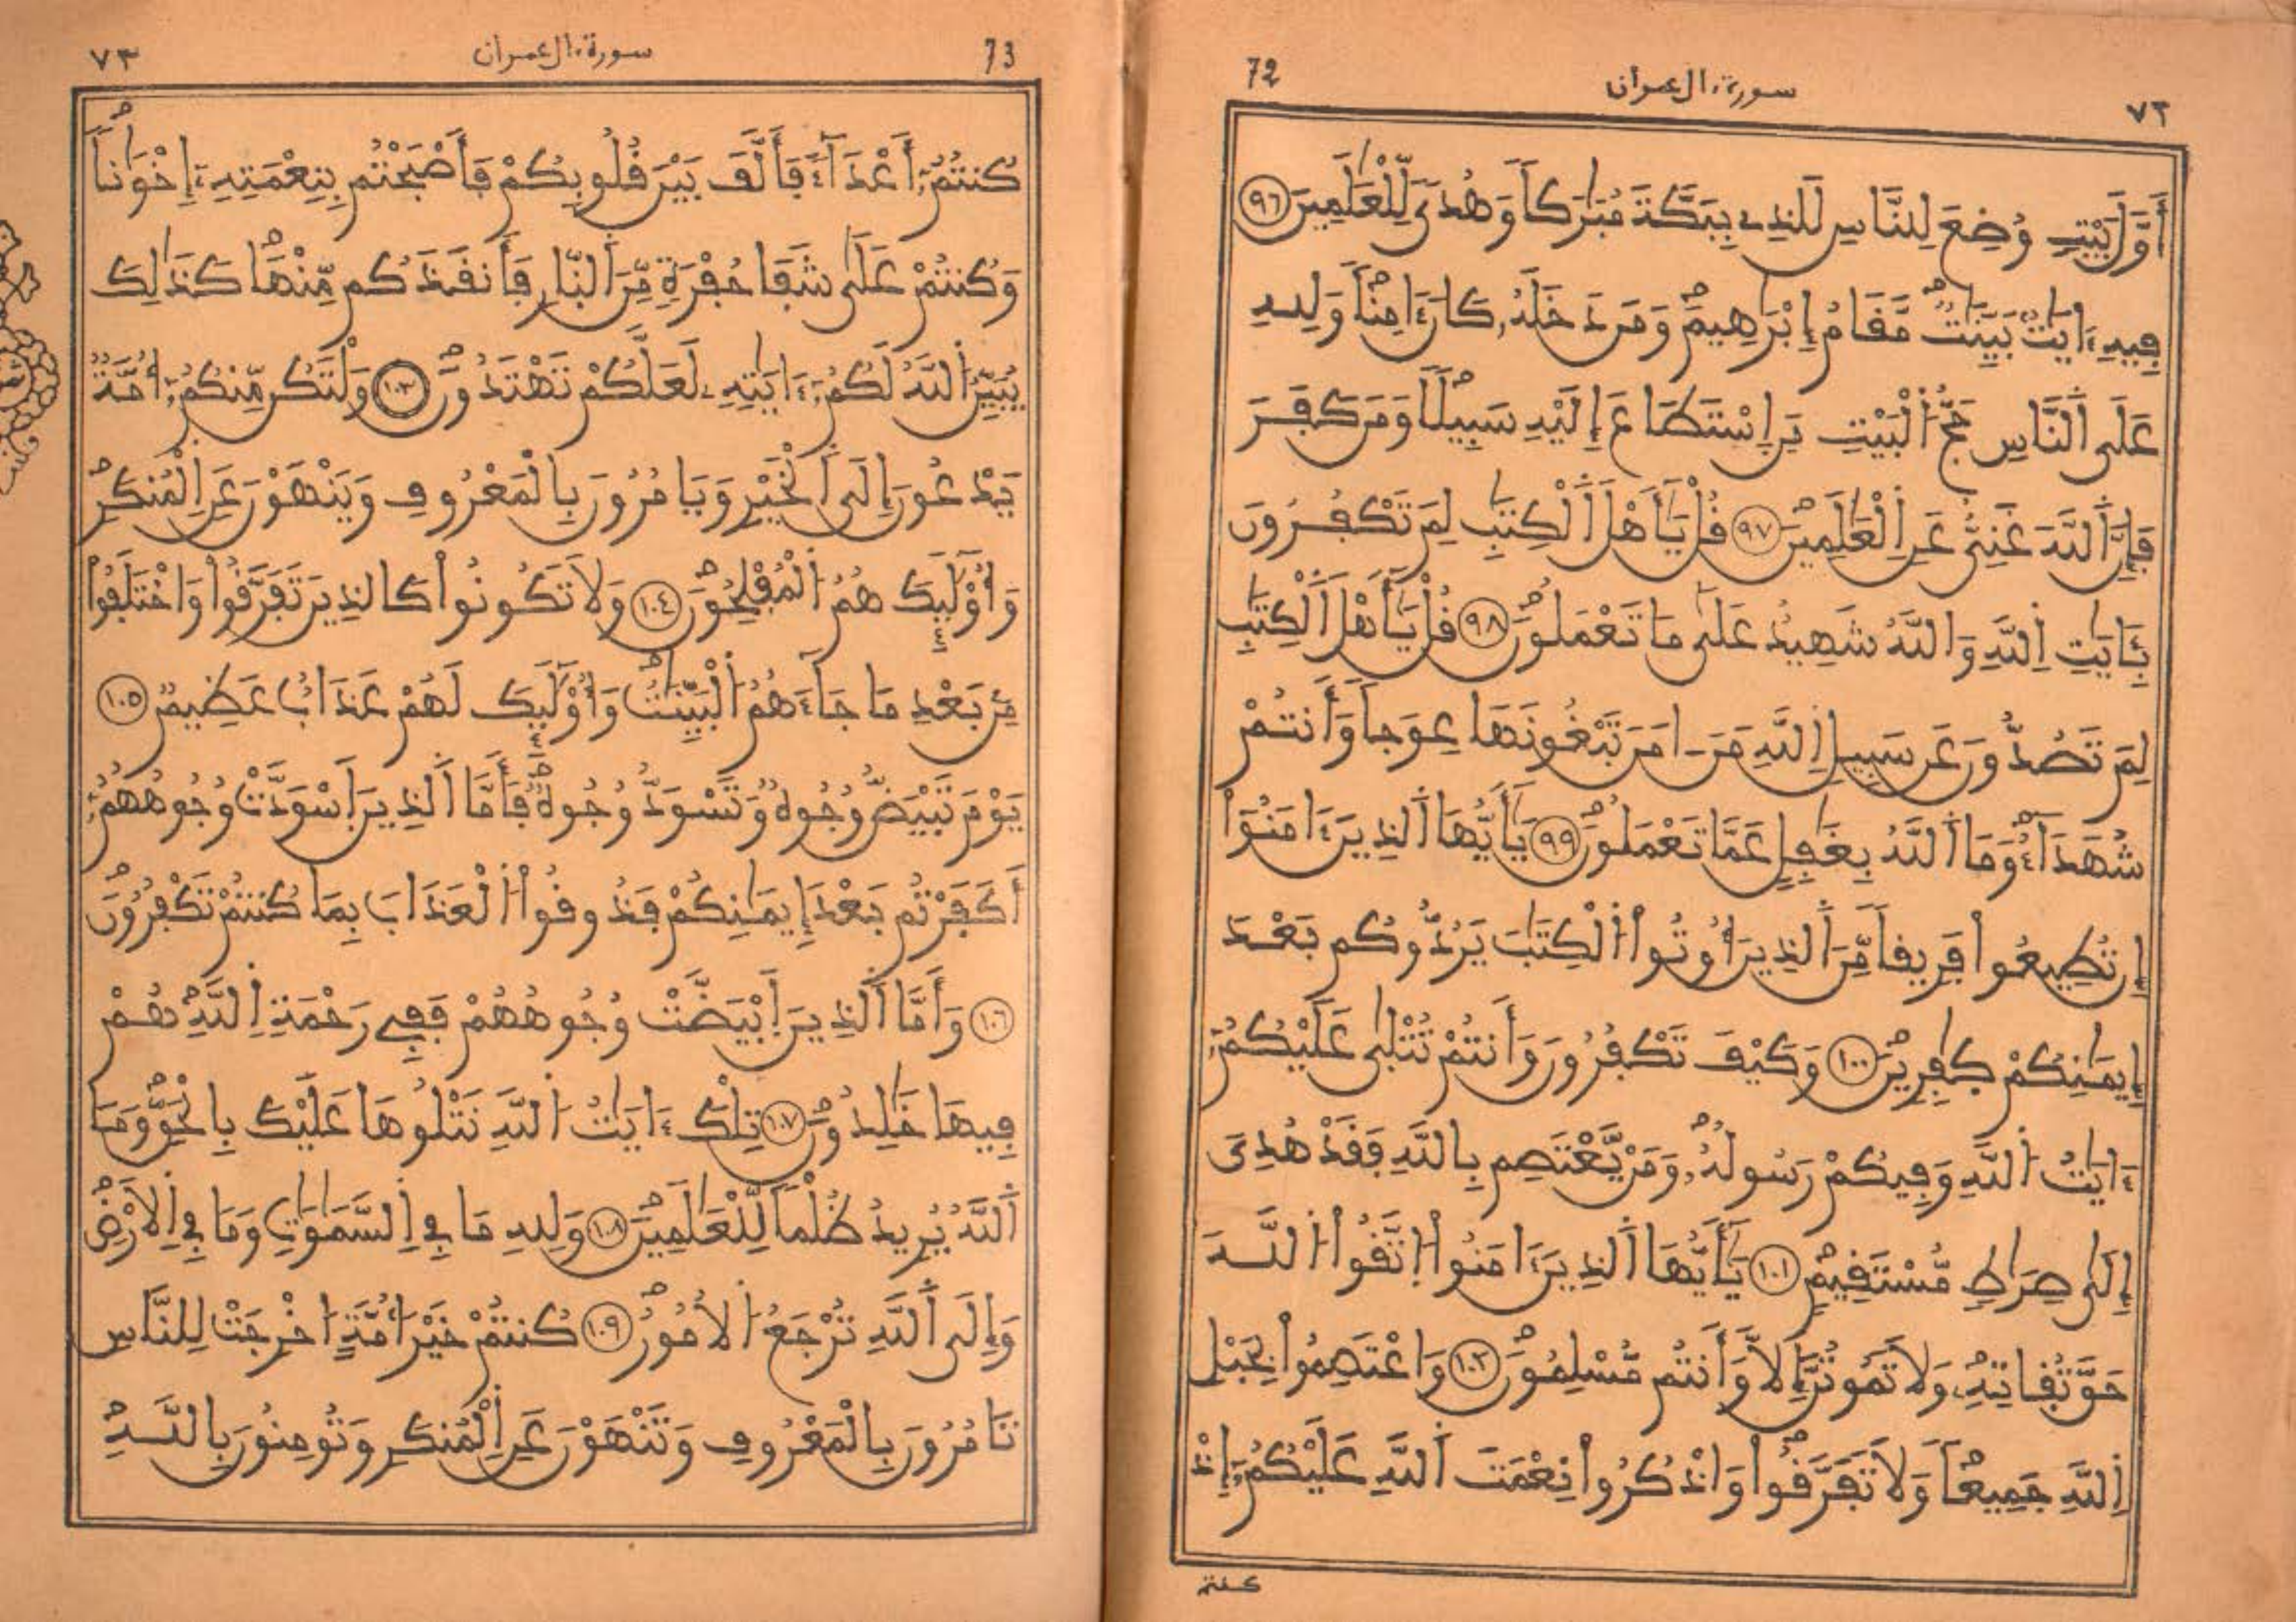 ٧٢ سورة ءال عمران 72
أَوَّلَ بَيْتٍ وُضِعَ لِلنَّاسِ لَلَّذِے بِبَكَّةَ مُبَٰرَكاً وَهُدىً لِّلْعَٰلَمِينَ ٩٦
فِيهِ ءَايَٰتٌ بَيِّنَٰتٌ مَّقَامُ إِبْرَٰهِيمَ وَمَن دَخَلَهُۥ كَانَ ءَامِناً وَلِلهِ
عَلَى اَلنَّاسِ حَجُّ اُلْبَيْتِ مَنِ اِسْتَطَاعَ إِلَيْهِ سَبِيلًا وَمَن كَفَرَ
فَإِنَّ اَللَّهَ غَنِيٌّ عَنِ اِلْعَٰلَمِينَ ٩٧ قُلْ يَٰأَهْلَ اَلْكِتَٰبِ لِمَ تَكْفُرُونَ
بِـَٔايَٰتِ اِللَّهِ وَاللَّهُ شَهِيدٌ عَلَىٰ مَا تَعْمَلُونَ ٩٨ قُلْ يَٰأَهْلَ اَلْكِتَٰبِ
لِمَ تَصُدُّونَ عَن سَبِيلِ اِللَّهِ مَنَ ـ امَنَ تَبْغُونَهَا عِوَجاً وَأَنتُمْ
شُهَدَآءُ وَمَا اَللَّهُ بِغَٰفِلٍ عَمَّا تَعْمَلُونَ ٩٩ يَٰأَيُّهَا اَلذِينَ ءَامَنُوٓاْ
إِن تُطِيعُواْ فَرِيقاً مِّنَ اَلذِينَ أُوتُواْ اُلْكِتَٰبَ يَرُدُّوكُم بَعْدَ
إِيمَٰنِكُمْ كَٰفِرِينَ ١٠٠ وَكَيْفَ تَكْفُرُونَ وَأَنتُمْ تُتْلَىٰ عَلَيْكُمُۥٓ
ءَايَٰتُ اُللَّهِ وَفِيكُمْ رَسُولُهُۥ وَمَنْ يَّعْتَصِم بِاللَّهِ فَقَدْ هُدِىَ
إِلَىٰ صِرَٰطٍ مُّسْتَقِيمٍ ١٠١ يَٰأَيُّهَا اَلذِينَ ءَامَنُواْ اُتَّقُواْ اُللَّهَ
حَقَّ تُقَاتِهِۦ وَلَا تَمُوتُنَّ إِلَّا وَأَنتُم مُّسْلِمُونَ ١٠٢ وَاعْتَصِمُواْ بِحَبْلِ
اِللَّهِ جَمِيعاً وَلَا تَفَرَّقُواْ وَاذْكُرُواْ نِعْمَتَ اَللَّهِ عَلَيْكُمُۥٓ إِذْ
كنتم
73 سورة ءال عمران ٧٣
كُنتُمُۥٓ أَعْدَآءً فَأَلَّفَ بَيْنَ قُلُوبِكُمْ فَأَصْبَحْتُم بِنِعْمَتِهِۦٓ إِخْوَٰناً
وَكُنتُمْ عَلَىٰ شَفَا حُفْرَةٍ مِّنَ اَلنّ۪ارِ فَأَنقَذَكُم مِّنْهَا كَذَٰلِكَ
يُبَيِّنُ اُللَّهُ لَكُمُۥٓ ءَايَٰتِهِۦ لَعَلَّكُمْ تَهْتَدُونَ ١٠٣ وَلْتَكُن مِّنكُمُۥٓ أُمَّةٌ
يَدْعُونَ إِلَى اَلْخَيْرِ وَيَامُرُونَ بِالْمَعْرُوفِ وَيَنْهَوْنَ عَنِ اِلْمُنكَرِ
وَأُوْلَٰٓئِكَ هُمُ اُلْمُفْلِحُونَ ١٠٤ وَلَا تَكُونُواْ كَالذِينَ تَفَرَّقُواْ وَاخْتَلَفُواْ
مِنۢ بَعْدِ مَا جَآءَهُمُ اُلْبَيِّنَٰتُ وَأُوْلَٰٓئِكَ لَهُمْ عَذَابٌ عَظِيمٌ ١٠٥
يَوْمَ تَبْيَضُّ وُجُوهٌ وَتَسْوَدُّ وُجُوهٌ فَأَمَّا اَلذِينَ اَسْوَدَّتْ وُجُوهُهُمُۥٓ
أَكَفَرْتُم بَعْدَ إِيمَٰنِكُمْ فَذُوقُواْ اُلْعَذَابَ بِمَا كُنتُمْ تَكْفُرُونَ
١٠٦ وَأَمَّا اَلذِينَ اَبْيَضَّتْ وُجُوهُهُمْ فَفِے رَحْمَةِ اِللَّهِ هُمْ
فِيهَا خَٰلِدُونَ ١٠٧ تِلْكَ ءَايَٰتُ اُللَّهِ نَتْلُوهَا عَلَيْكَ بِالْحَقِّ وَمَا
اَللَّهُ يُرِيدُ ظُلْماً لِّلْعَٰلَمِينَ ١٠٨ وَلِلهِ مَا فِے اِلسَّمَٰوَٰتِ وَمَا فِے اِلْأَرْضِ
وَإِلَى اَللَّهِ تُرْجَعُ اُلْأُمُورُ ١٠٩ كُنتُمْ خَيْرَ أُمَّةٍ اُخْرِجَتْ لِلنَّاسِ
تَامُرُونَ بِالْمَعْرُوفِ وَتَنْهَوْنَ عَنِ اِلْمُنكَرِ وَتُومِنُونَ بِاللَّهِ